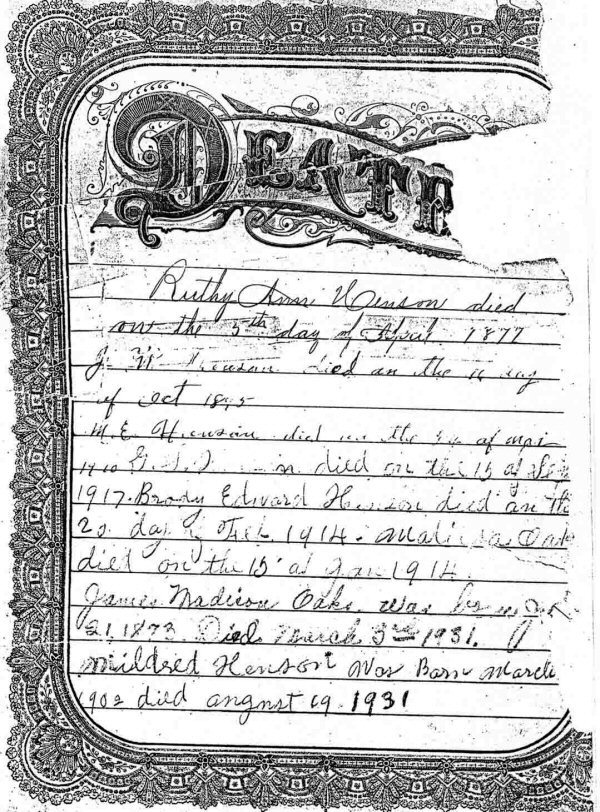 DEATH
Ruthy Ann Henson died
on the 5th day of April 1877
J. W. Henson died on the 11 day
of Oct 1895
M. E. Henson died on the of
died on the 15 of Se
1917. Brody Edward Henson died on th
day of Feb 1914. Malinda Oak
died on the 15 of Jan 1914.
James Madison Oaks was born
21, 1873. Died March 3rd 1931.
Mildred Henson Was Born March
1902 died august 19. 1931